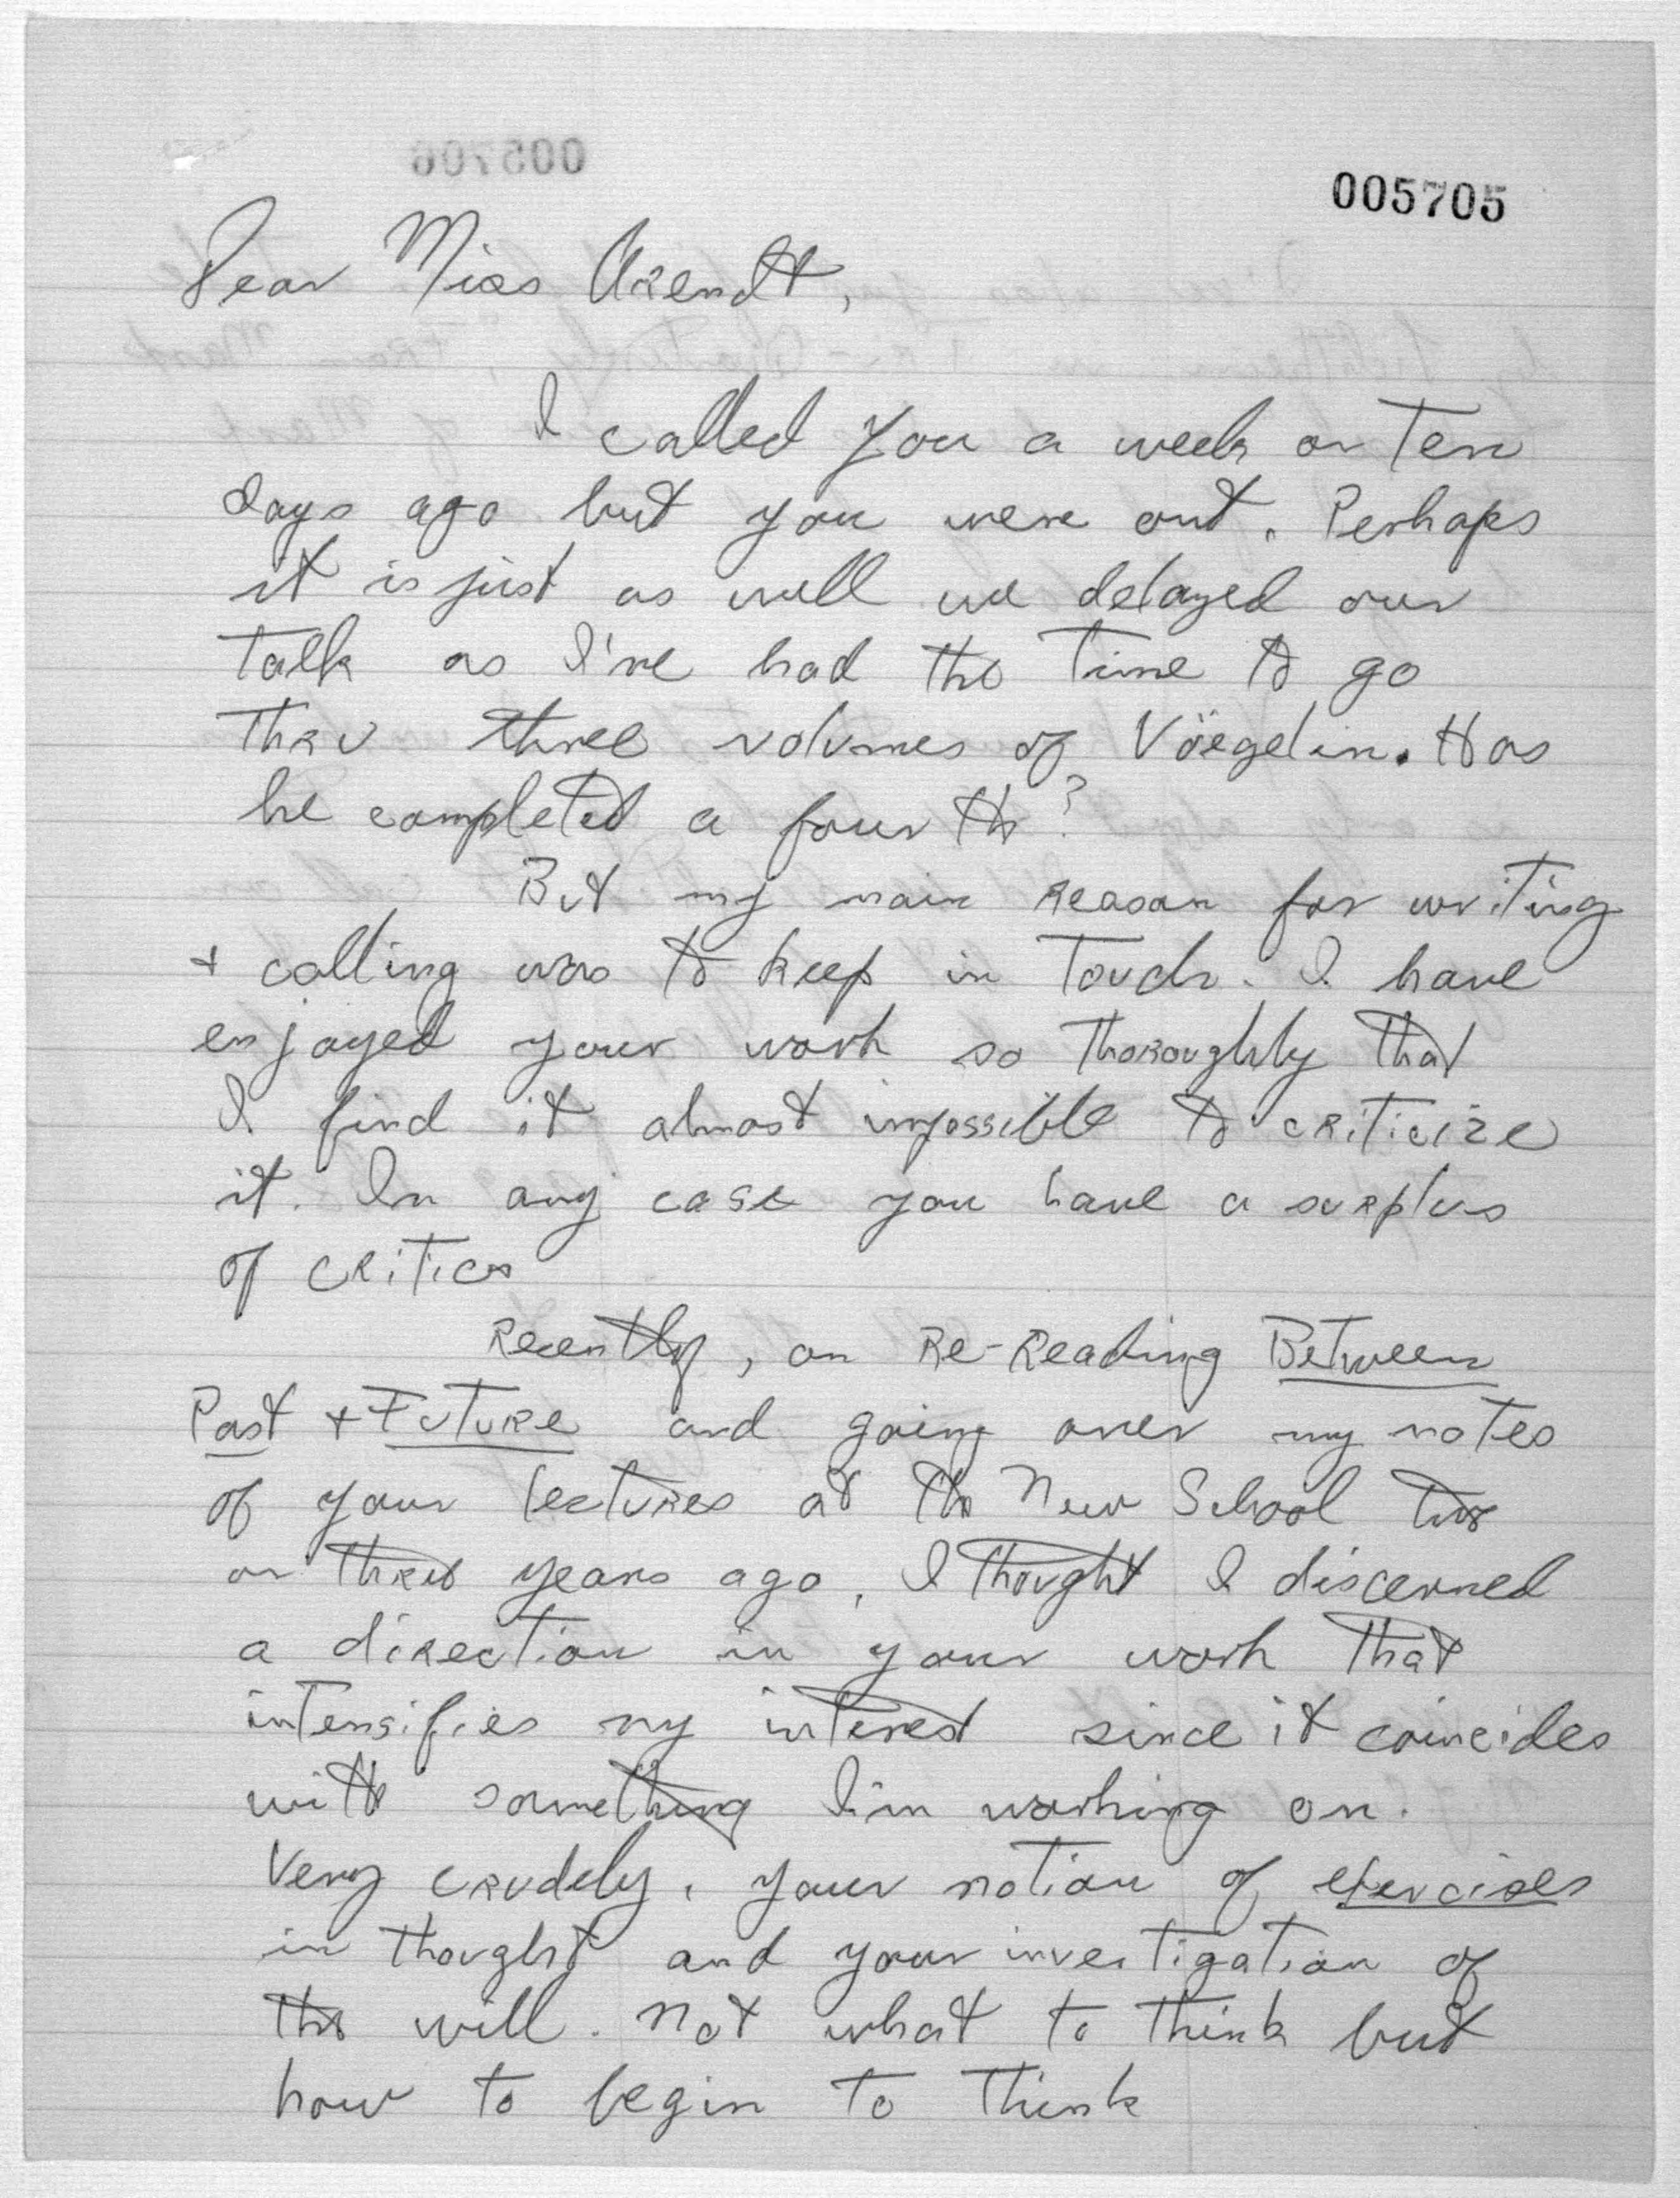 005706
005705
Dear Miss Arendt,
I called you a week or ten
days ago but you were out. Perhaps
it is just as well we delayed our
talk as I've had the time to go
thru three volumes of Vöegelin. Has
he completed a fourth?
But my main reason for writing
+ calling was to keep in touch. I have
enjoyed your work so thoroughly that
I find it almost impossible to criticize
it. In any case you have a surplus
of critics
Recently, on re-reading Between
Past + Future and going over my notes
of your lectures at the New School two
or three years ago, I thought I discerned
a direction in your work that
intensifies my interest since it coincides
with something I'm working on.
Very crudely, your notion of exercises
in thought and your investigation of
the will. Not what to think but
how to begin to think